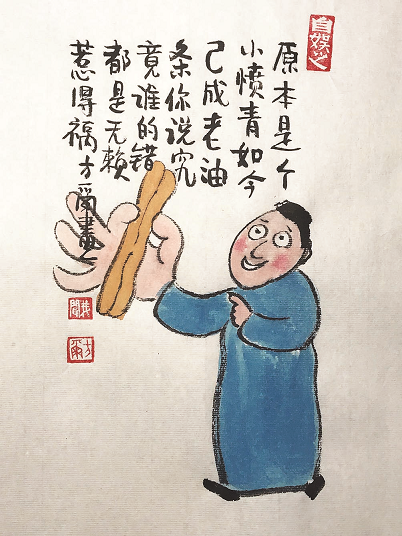 自娱
原本是个
小愤青如今
己成老油
条你说究
竟谁的错
都是无赖
惹得祸方畫之